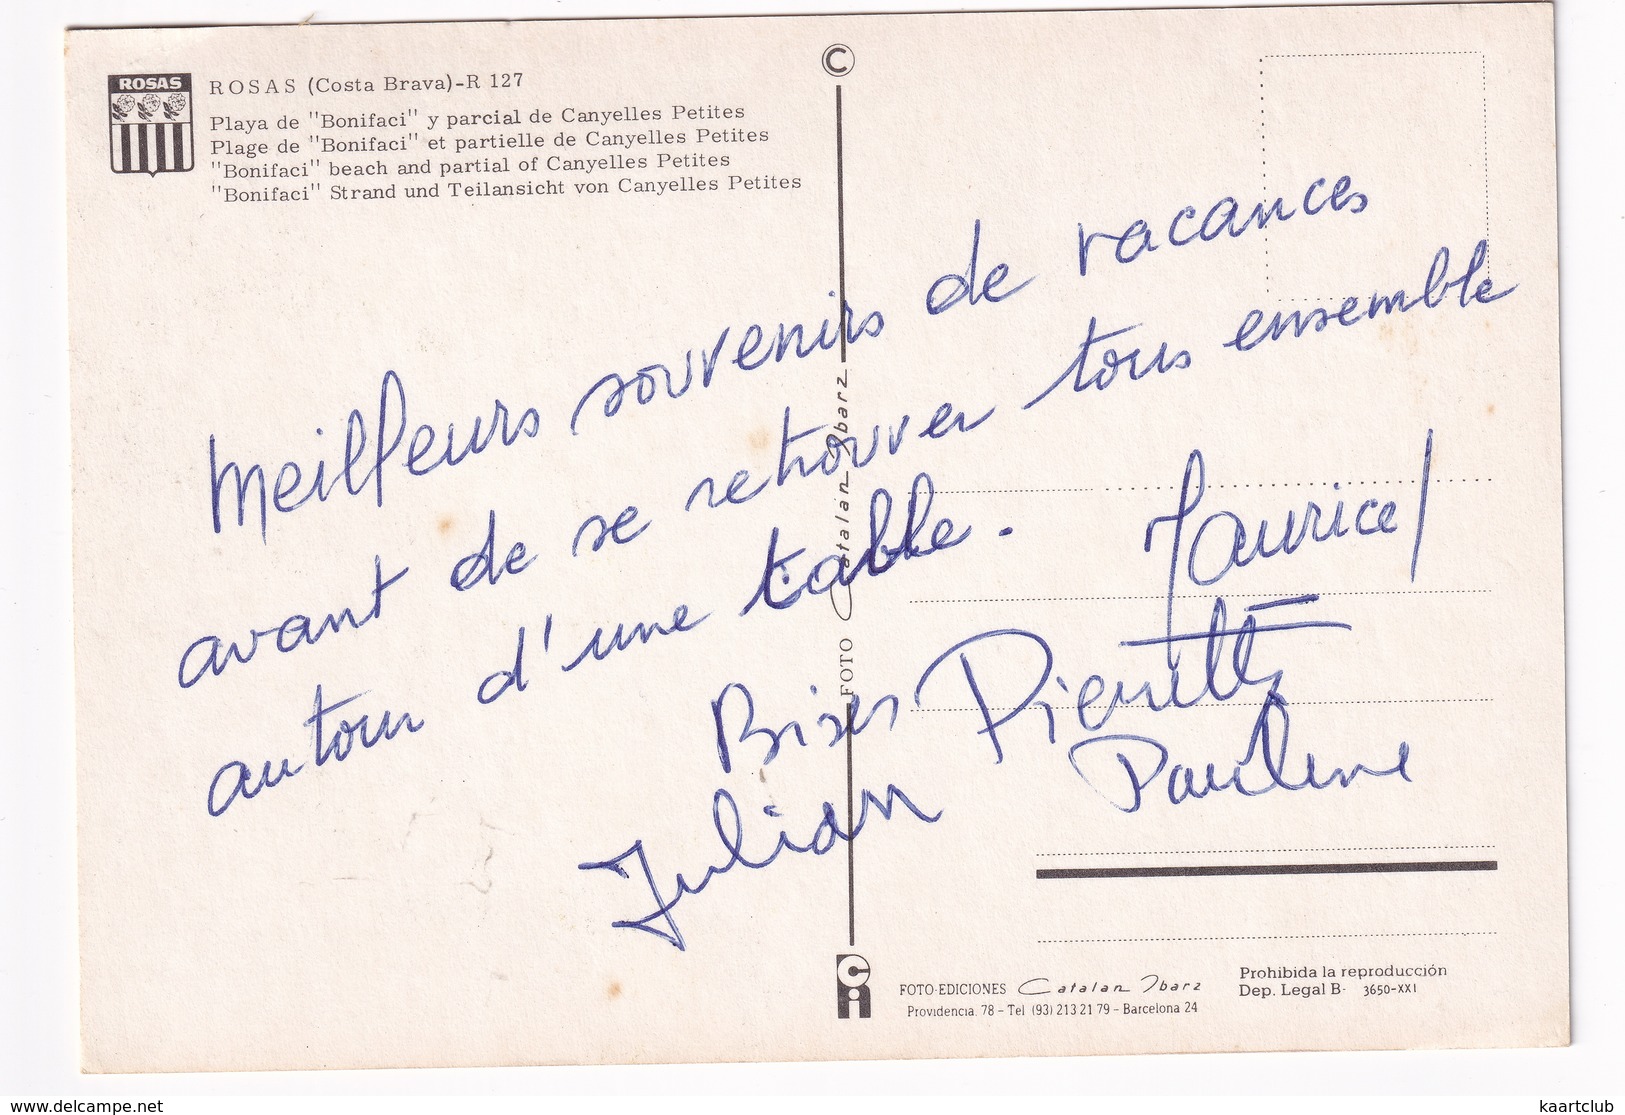 ROSAS
ROSAS (Costa Brava)-R 127
Playa de "Bonifaci" y parcial de Canyelles Petites
Plage de "Bonifaci" et partielle de Canyelles Petites
"Bonifaci" beach and partial of Canyelles Petites
"Bonifaci" Strand und Teilansicht von Canyelles Petites
C
Meilleurs souvenirs de vacances
avant de se retrouver tous ensemble
autour d'une table.
Maurice
Bises Pierrette
Julian Pauline
FOTO Catalan Ibarz
FOTO-EDICIONES Catalan Ibarz
Providencia, 78 - Tel (93) 213 21 79 - Barcelona 24
Prohibida la reproducción
Dep. Legal B- 3650-XXI
www.delcampe.net
kaartclub